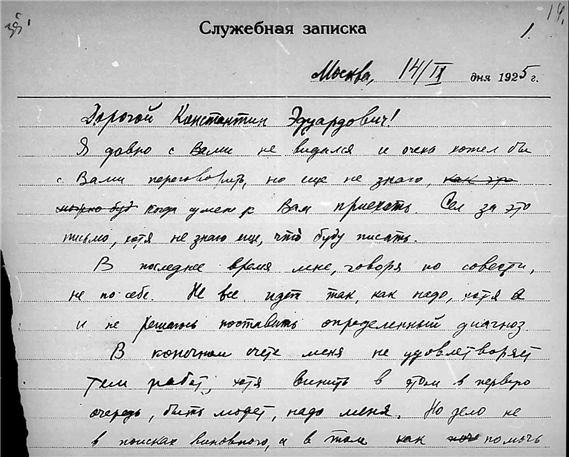 14.
1.
Служебная записка
Москва, 14/IX дня 1925 г.
Дорогой Константин Эдуардович!
Я давно с Вами не виделся и очень хотел бы
с Вами переговорить, но еще не знаю, как это
можно буд когда умею к Вам приехать. Сел за это
письмо, хотя не знаю еще, что буду писать.
В последнее время мне, говоря по совести,
не по себе. Не все идет так, как надо, хотя я
и не решаюсь поставить определенный диагноз
В конечном счете меня не удовлетворяет
темп работ, хотя винить в этом в первую
очередь, быть может, надо меня. Но дело не
в поисках виновного, а в том как помочь